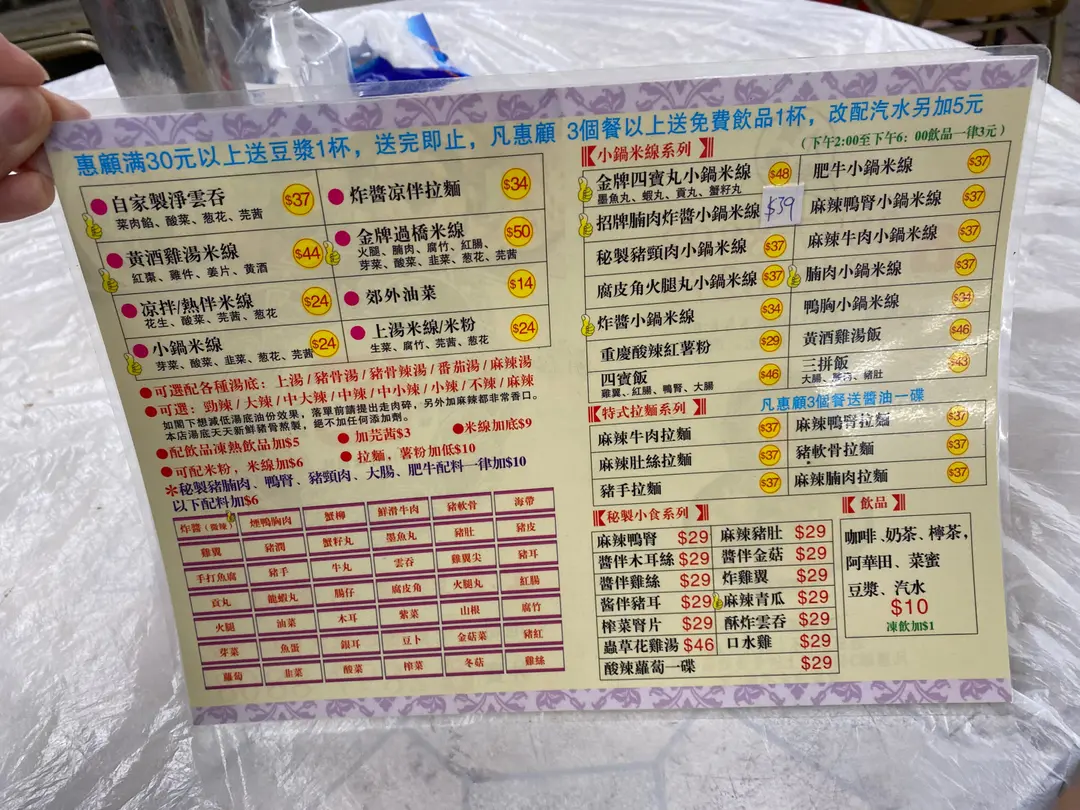 惠顧满30元以上送豆漿1杯，送完即止，凡惠顧 3個餐以上送免費飲品1杯，改配汽水另加5元
(下午2:00至下午6：00飲品一律3元)
自家製淨雲吞 $37
菜肉餡、酸菜、葱花、芫茜
炸醬凉伴拉麵 $34
黄酒雞湯米線 $44
紅棗、雞件、姜片、黄酒
金牌過橋米線 $50
火腿、腩肉、腐竹、紅腸、
芽菜、酸菜、韭菜、葱花、芫茜
凉拌/熱伴米線 $24
花生、酸菜、芫茜、葱花
郊外油菜 $14
小鍋米線 $24
芽菜、酸菜、韭菜、葱花、芫茜
上湯米線/米粉 $24
生菜、腐竹、芫茜、葱花
●可選配各種湯底：上湯/豬骨湯/豬骨辣湯/番茄湯/麻辣湯
●可選：勁辣/大辣/中大辣/中辣/中小辣/小辣/不辣/麻辣
如閣下想减低湯底油份效果，落單前請提出走肉碎，另外加麻辣都非常香口。
本店湯底天天新鮮豬骨熬製，絕不加任何添加劑。
●配飲品凍熱飲品加$5 ●加芫茜$3 ●米線加底$9
●可配米粉，米線加$6 ●拉麵，薯粉加低$10
*秘製豬腩肉、鴨腎、豬頸肉、大腸、肥牛配料一律加$10
以下配料加$6
炸醬(微辣) 煙鴨胸肉 蟹柳 鮮滑牛肉 豬軟骨 海帶
雞翼 豬潤 蟹籽丸 墨魚丸 豬肚 豬皮
手打魚腐 豬手 牛丸 雲吞 雞翼尖 豬耳
貢丸 龍蝦丸 腸仔 腐皮角 火腿丸 紅腸
火腿 油菜 木耳 紫菜 山根 腐竹
芽菜 魚蛋 銀耳 豆卜 金菇菜 豬紅
蘿蔔 韭菜 酸菜 榨菜 冬菇 雞絲
小鍋米線系列
金牌四寶丸小鍋米線 $48
墨魚丸、蝦丸、貢丸、蟹籽丸
肥牛小鍋米線 $37
招牌腩肉炸醬小鍋米線 $39
麻辣鴨腎小鍋米線 $37
秘製豬頸肉小鍋米線 $37
麻辣牛肉小鍋米線 $37
腐皮角火腿丸小鍋米線 $37
腩肉小鍋米線 $37
炸醬小鍋米線 $34
鴨胸小鍋米線 $34
重慶酸辣紅薯粉 $29
黃酒雞湯飯 $46
四寶飯 $46
雞翼、紅腸、鴨腎、大腸
三拼飯 $43
大腸、豬肚
特式拉麵系列
凡惠顧3個餐送醬油一碟
麻辣牛肉拉麵 $37
麻辣鴨腎拉麵 $37
麻辣肚絲拉麵 $37
豬軟骨拉麵 $37
豬手拉麵 $37
麻辣腩肉拉麵 $37
秘製小食系列
麻辣鴨腎 $29 麻辣豬肚 $29
醬伴木耳絲 $29 醬伴金菇 $29
醬伴雞絲 $29 炸雞翼 $29
酱伴豬耳 $29 麻辣青瓜 $29
榨菜肾片 $29 酥炸雲吞 $29
蟲草花雞湯 $46 口水雞 $29
酸辣蘿蔔一碟 $29
飲品
咖啡、奶茶、檸茶，
阿華田、菜蜜
豆漿、汽水
$10
凍飲加$1